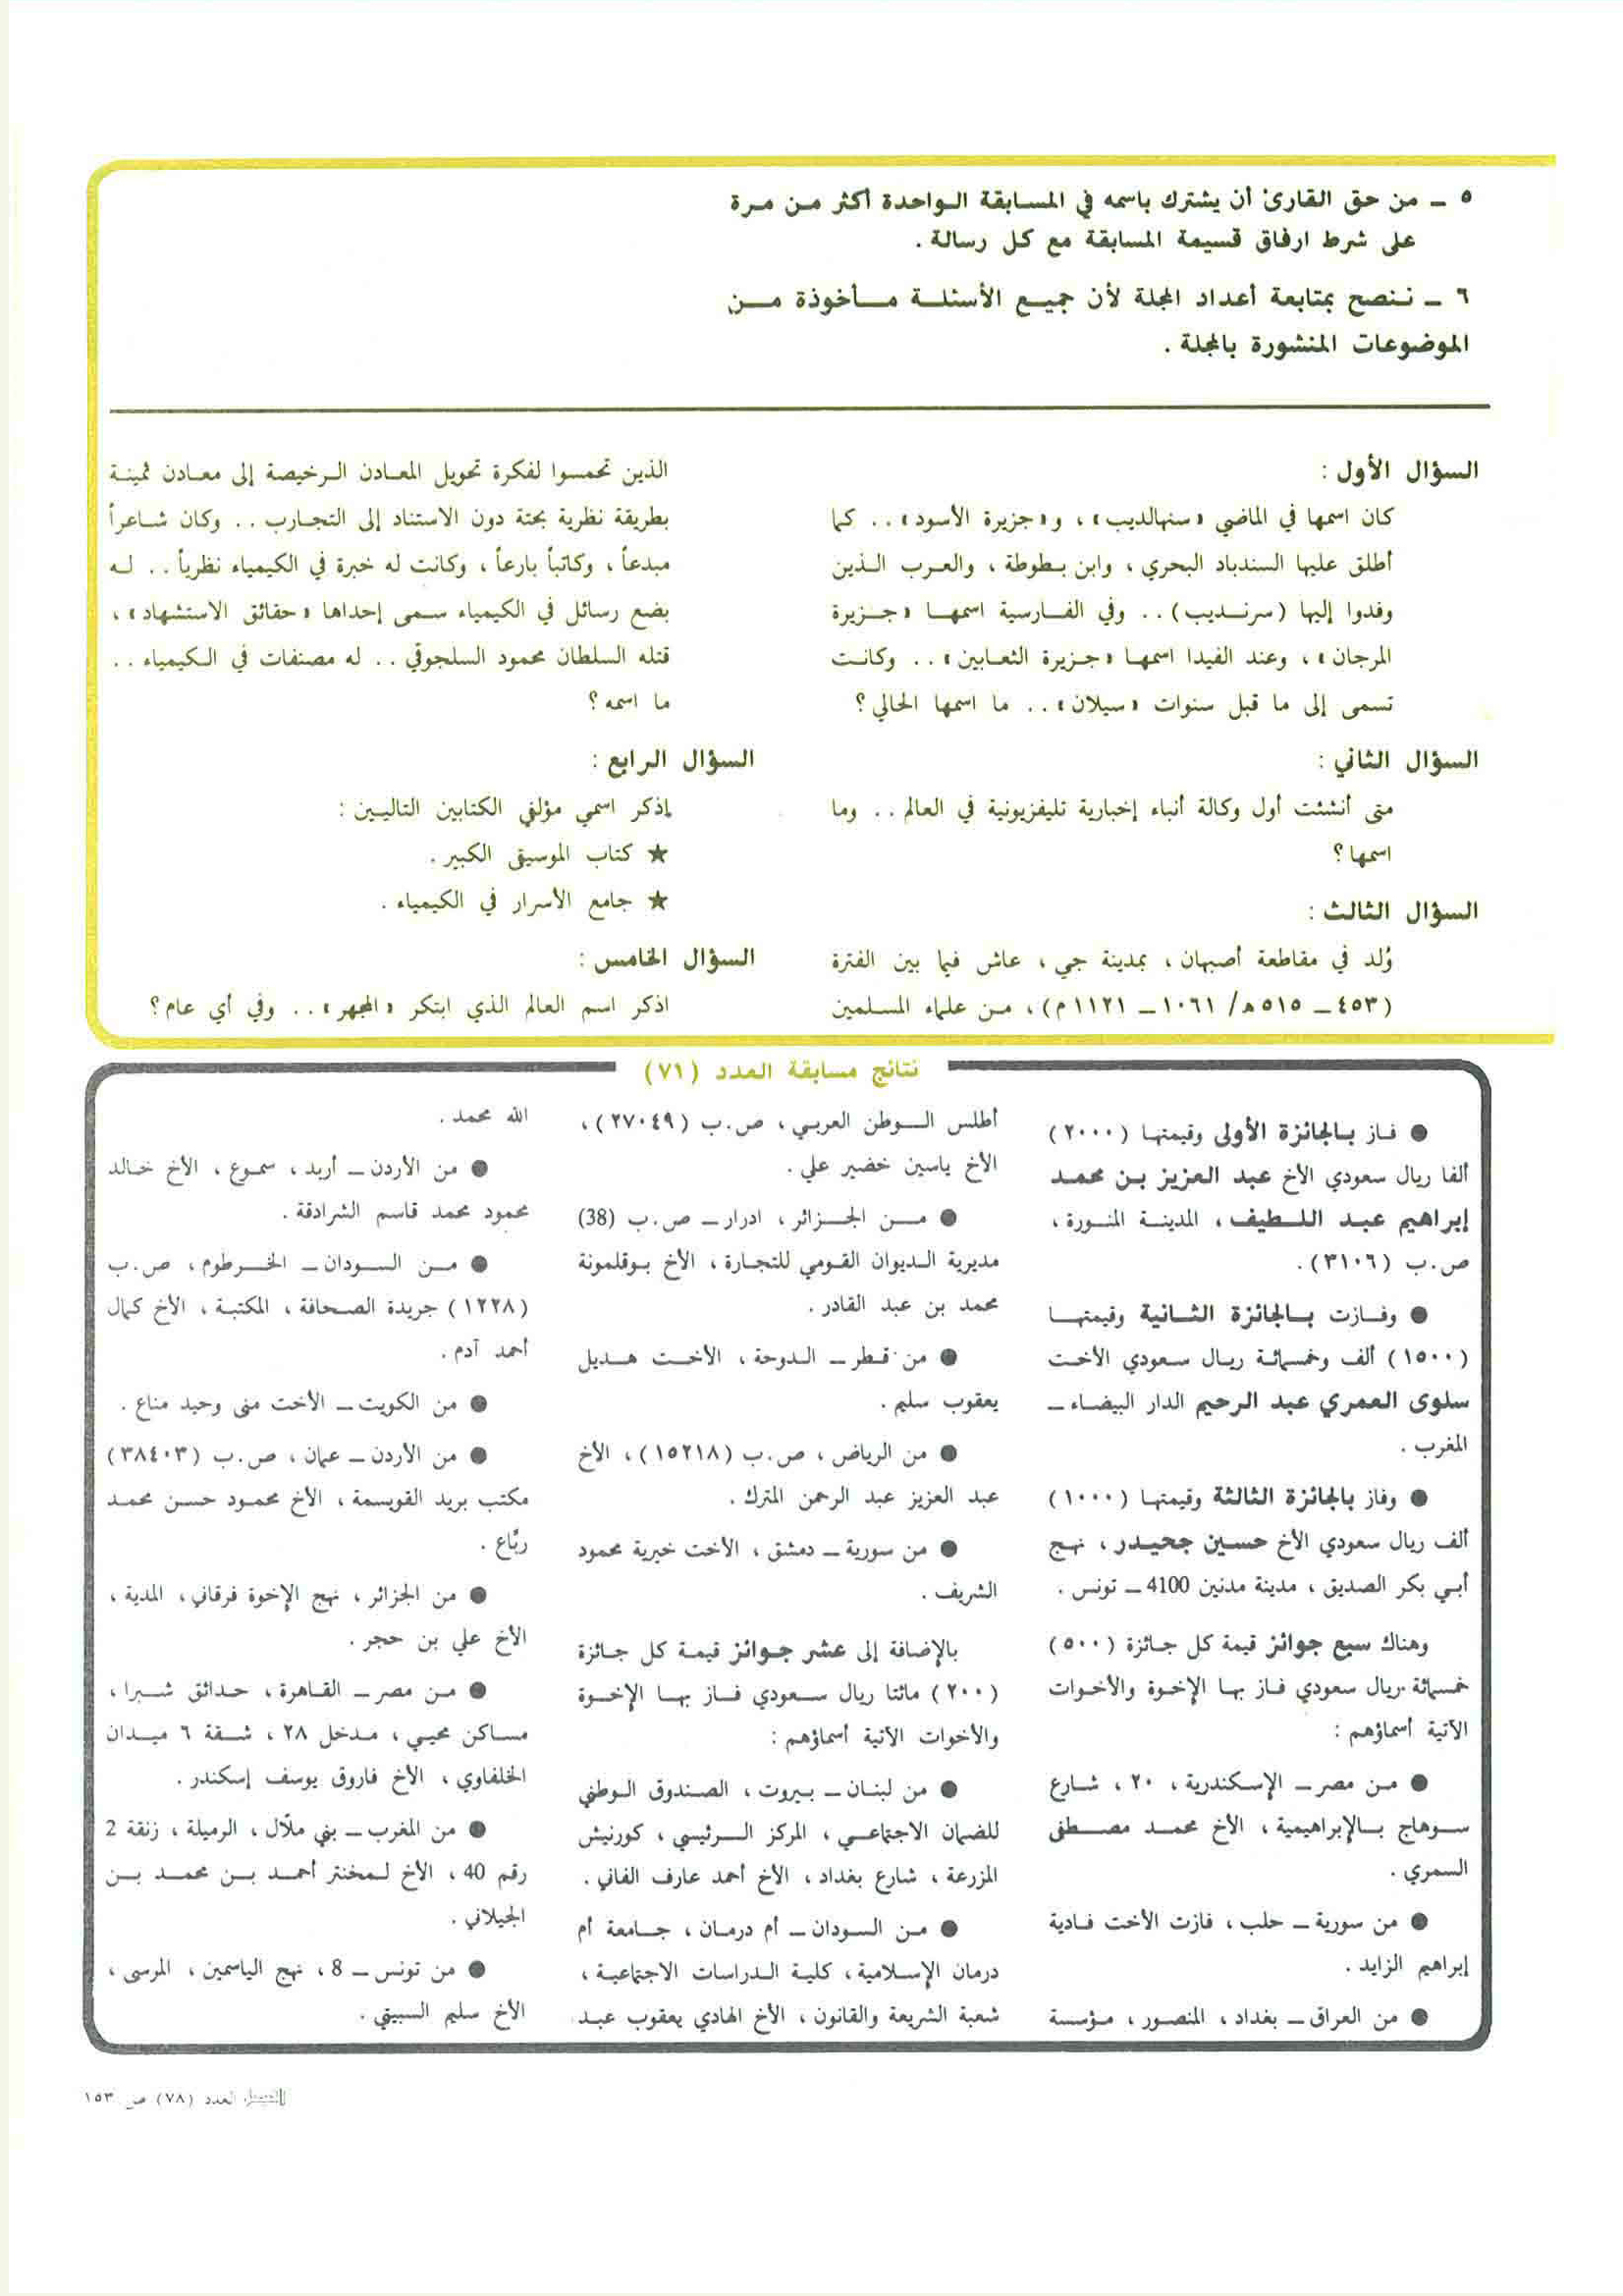 ٥ – من حق القارئ أن يشترك باسمه في المسابقة الواحدة أكثر من مرة
على شرط ارفاق قسيمة المسابقة مع كل رسالة .
٦ – ننصح بمتابعة أعداد المجلة لأن جميع الأسئلة مأخوذة من
الموضوعات المنشورة بالمجلة .
السؤال الأول :
كان اسمها في الماضي «سنهالديب» ، و«جزيرة الأسود» . . كما
أطلق عليها السندباد البحري ، وابن بطوطة ، والعرب الذين
وفدوا إليها (سرنديب) . . وفي الفارسية اسمها «جزيرة
المرجان» ، وعند الفيدا اسمها «جزيرة الثعابين» . . وكانت
تسمى إلى ما قبل سنوات «سيلان» . . ما اسمها الحالي ؟
السؤال الثاني :
متى أنشئت أول وكالة أنباء إخبارية تليفزيونية في العالم . . وما
اسمها ؟
السؤال الثالث :
وُلد في مقاطعة أصبهان ، بمدينة جي ، عاش فيما بين الفترة
(٤٥٣ – ٥١٥ هـ / ١٠٦١ – ١١٢١ م) ، من علماء المسلمين
الذين تحمسوا لفكرة تحويل المعادن الرخيصة إلى معادن ثمينة
بطريقة نظرية بحتة دون الاستناد إلى التجارب . . وكان شاعراً
مبدعاً ، وكاتباً بارعاً ، وكانت له خبرة في الكيمياء نظرياً . . له
بضع رسائل في الكيمياء سمى إحداها «حقائق الاستشهاد» ،
قتله السلطان محمود السلجوقي . . له مصنفات في الكيمياء . .
ما اسمه ؟
السؤال الرابع :
إذكر اسمي مؤلفي الكتابين التاليين :
★ كتاب الموسيقى الكبير .
★ جامع الأسرار في الكيمياء .
السؤال الخامس :
اذكر اسم العالم الذي ابتكر «المجهر» . . وفي أي عام ؟
نتائج مسابقة العدد (٧١)
● فاز بالجائزة الأولى وقيمتها (٢٠٠٠)
ألفا ريال سعودي الأخ عبد العزيز بن محمد
إبراهيم عبد اللطيف ، المدينة المنورة ،
ص.ب (٣١٠٦) .
● وفازت بالجائزة الثانية وقيمتها
(١٥٠٠) ألف وخمسمائة ريال سعودي الأخت
سلوى العمري عبد الرحيم الدار البيضاء –
المغرب .
● وفاز بالجائزة الثالثة وقيمتها (١٠٠٠)
ألف ريال سعودي الأخ حسين جحيدر ، نهج
أبي بكر الصديق ، مدينة مدنين 4100 – تونس .
وهناك سبع جوائز قيمة كل جائزة (٥٠٠)
خمسمائة ريال سعودي فاز بها الإخوة والأخوات
الآتية أسماؤهم :
● من مصر – الإسكندرية ، ٢٠ ، شارع
سوهاج بالإبراهيمية ، الأخ محمد مصطفى
السمري .
● من سورية – حلب ، فازت الأخت فادية
إبراهيم الزايد .
● من العراق – بغداد ، المنصور ، مؤسسة
أطلس الوطن العربي ، ص.ب (٢٧٠٤٩) ،
الأخ ياسين خضير علي .
● من الجزائر ، ادرار – ص.ب (38)
مديرية الديوان القومي للتجارة ، الأخ بوقلمونة
محمد بن عبد القادر .
● من قطر – الدوحة ، الأخت هديل
يعقوب سليم .
● من الرياض ، ص.ب (١٥٢١٨) ، الأخ
عبد العزيز عبد الرحمن المترك .
● من سورية – دمشق ، الأخت خيرية محمود
الشريف .
بالإضافة إلى عشر جوائز قيمة كل جائزة
(٢٠٠) مائتا ريال سعودي فاز بها الإخوة
والأخوات الآتية أسماؤهم :
● من لبنان – بيروت ، الصندوق الوطني
للضمان الاجتماعي ، المركز الرئيسي ، كورنيش
المزرعة ، شارع بغداد ، الأخ أحمد عارف الفاني .
● من السودان – أم درمان ، جامعة أم
درمان الإسلامية ، كلية الدراسات الاجتماعية ،
شعبة الشريعة والقانون ، الأخ الهادي يعقوب عبد
الله محمد .
● من الأردن – أربد ، سموع ، الأخ خالد
محمود محمد قاسم الشرادقة .
● من السودان – الخرطوم ، ص.ب
(١٢٢٨) جريدة الصحافة ، المكتبة ، الأخ كمال
أحمد آدم .
● من الكويت – الأخت منى وحيد مناع .
● من الأردن – عمان ، ص.ب (٣٨٤٠٣)
مكتب بريد القويسمة ، الأخ محمود حسن محمد
ربّاع .
● من الجزائر ، نهج الإخوة فرقاني ، المدية ،
الأخ علي بن حجر .
● من مصر – القاهرة ، حدائق شبرا ،
مساكن محيي ، مدخل ٢٨ ، شقة ٦ ميدان
الخلفاوي ، الأخ فاروق يوسف إسكندر .
● من المغرب – بني ملّال ، الرميلة ، زنقة 2
رقم 40 ، الأخ لمخنتر أحمد بن محمد بن
الجيلاني .
● من تونس – 8 ، نهج الياسمين ، المرسى ،
الأخ سليم السبيتي .
الفيصل العدد (٧٨) ص ١٥٣